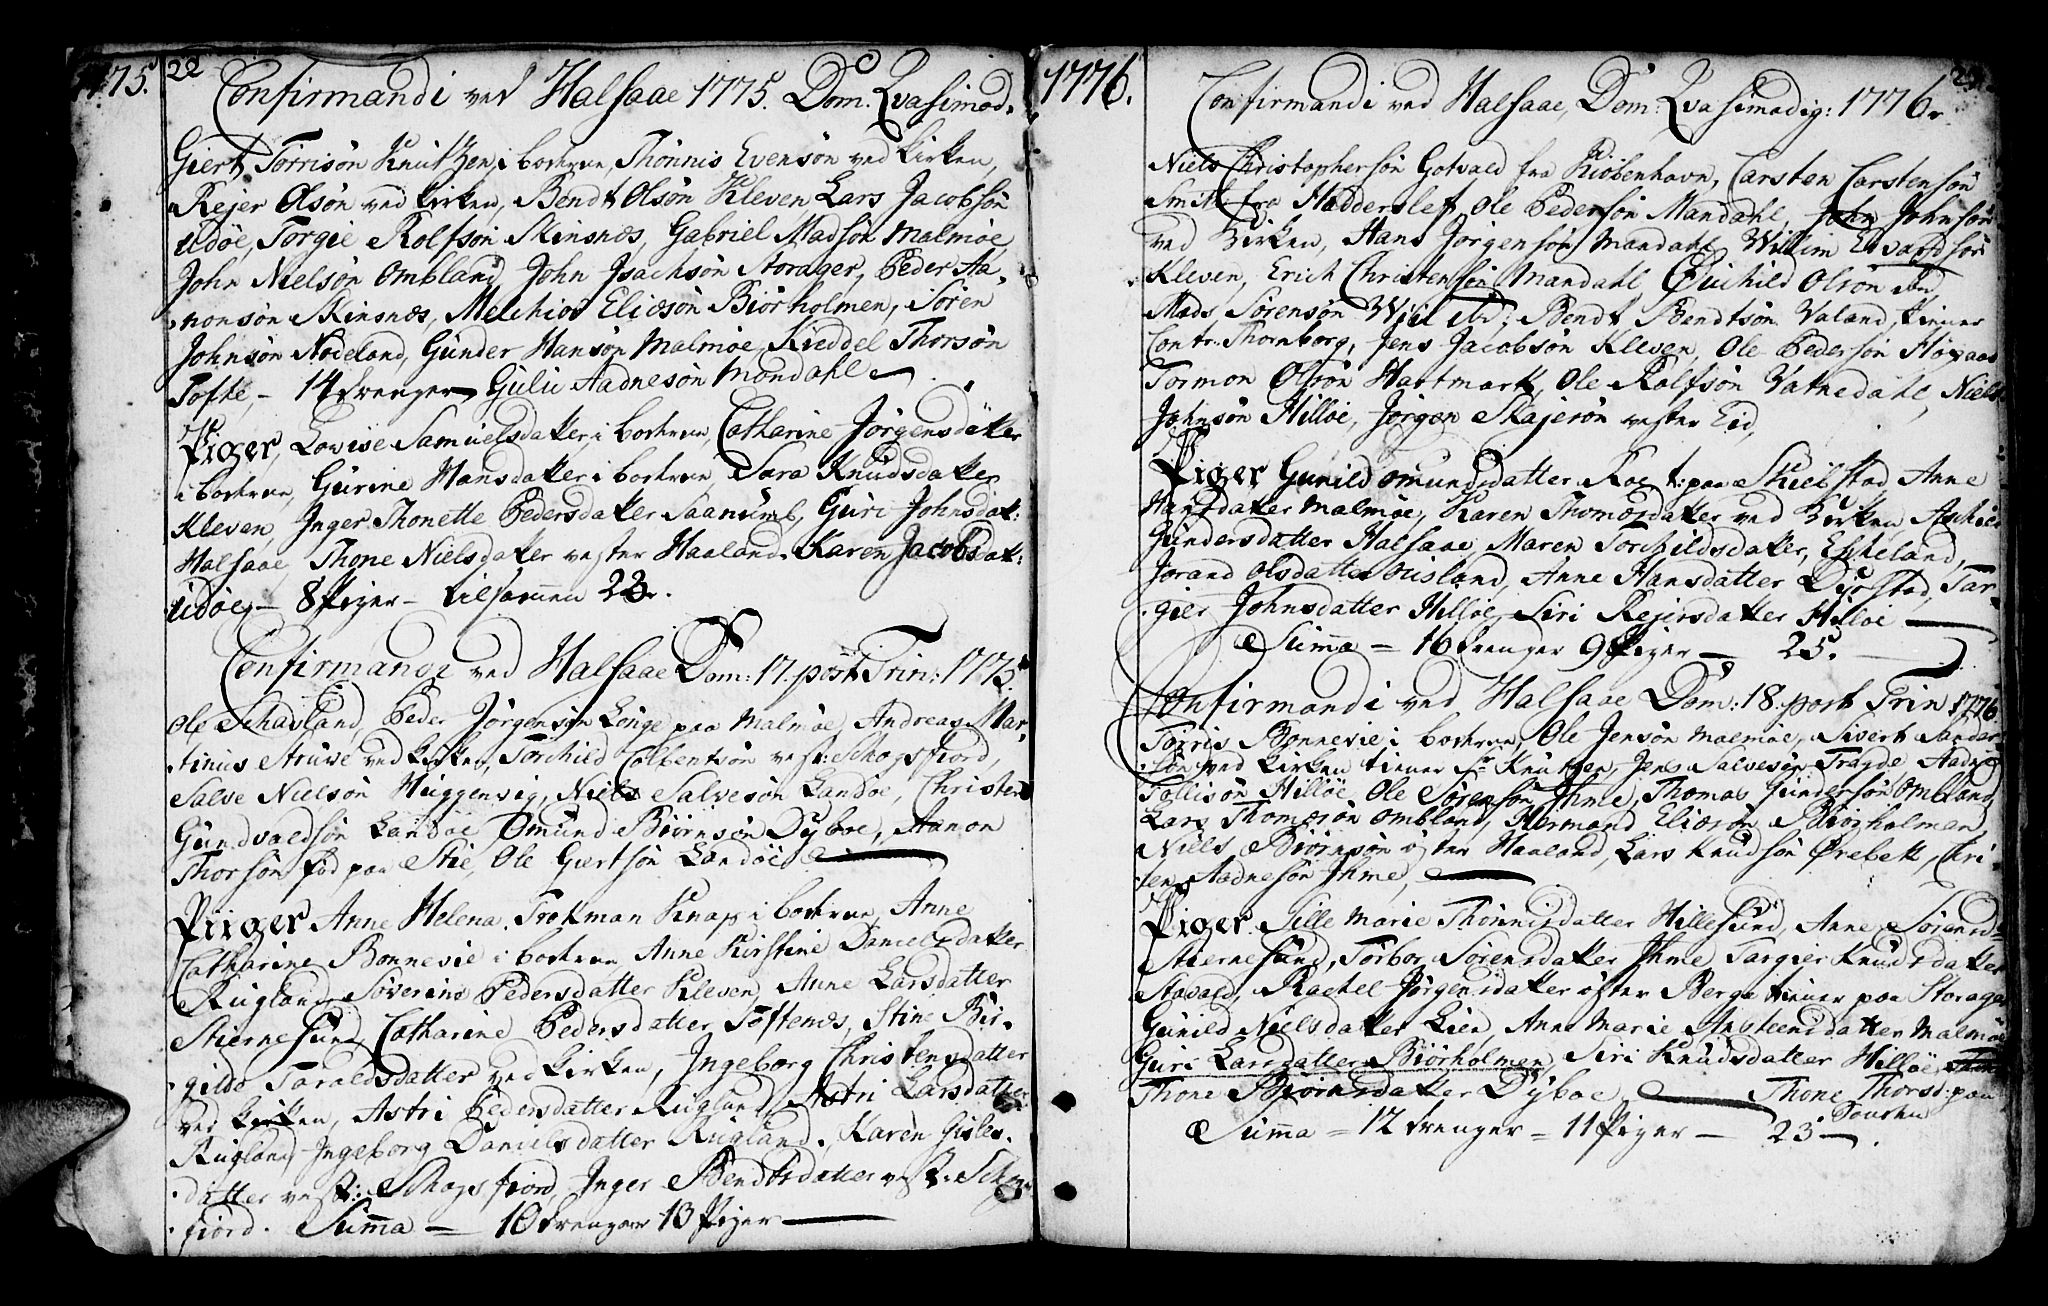 1775.
22
Confirmandi ved Halsaae 1775. Dom. Qvasimod.
Giert Torrisøn Knutzen, i boehren, Thonnis Evensøn ved kirken,
Rejer Olsøn ved kirken, Bendt Olsøn Kleven Lars Jacobsøn
Udøe, Torgie Rolfsøn Skinsnæs, Gabriel Madsøn Malmøe,
John Nielsøn Ombland, John Isachsøn Storager, Peder Aa-
nonsøn Skinsnæs, Melchior Eliesøn Biørholmen, Søren
Johnsøn Nodeland, Gunder Hansøn Malmøe, Kieddel Thorsøn
Tofte, - 14 drenger, Gulu Aadnesøn Mandahl
Piger, Lovise Samuelsdatter, i boehren, Catharine Jørgensdatter
i boehren, Gurine Hansdatter i boehren, Sara Knudsdatter
Kleven, Inger Thonette Pedersdatter Saanumb, Guri Johnsdat:
Halsaae, Thone Nielsdatter vester Haaland. Karen Jacobsdat:
Udøe, - 8 Piger - tilsammen 22.
Confirmandi ved Halsaae Dom: 17. post Trin: 1775
Ole Schafland, Peder Jørgensøn Longe paa Malmøe, Andreas Mar-
tinus Struve ved kirken, Torchild Colbentsøn vest: Schogsfiord,
Salve Nielsøn Huggenvig, Niels Salvesøn Landøe, Christen
Gundvaldsøn Landøe Omund Biørnsøn Dyboe, Aanon
Thorsøn fød paa Stie, Ole Giertsøn Landøe
Piiger Anne Helena Trokman Knap i boehren, Anne
Catharine Bonnevie i boehren Anne Kirstine Danielsdatter
Rugland, Søverine Pedersdatter Kleven, Anne Larsdatter
Stiernesund, Catharine Pedersdatter, Toftenæs, Stine Bir-
gitte Taraldsdatter ved kirken, Ingeborg Christensdatter
ved kirken, Astri Pedersdatter Rugland, Astri Larsdatter
Rugland Ingeborg Danielsdatter Rugland, Karen Gisles-
datter vest: Schogsfiord, Inger Bendtsdatter vest: Schogs-
fiord. Summa - 10 drenger 13 Piger
1776.
23
Confirmandi ved Halsaae, Dom: Qvasimodig: 1776.
Niels Christophersøn Gotvald fra Kiøbenhavn, Carsten Carstensøn
Smit fra Hadderslef, Ole Pedersøn Mandahl, John Johnsøn
ved Kirken, Hans Jørgensøn Mandahl Willum Edvardsøn
Kleven, Erich Christensøn Mandahl Øuchild Olsøn
Mads Sørensøn Bendt Bendtsøn Valand, tiener
Contr. Thornborg, Jens Jacobsøn Kleven, Ole Pedersøn Høgaas
Tormon Olsøn Hartmark, Ole Rolfsøn Vatnedahl, Niels
Johnsøn Hilløe, Jørgen Skajerøn vester Eid,
Piger Gunild Omundsdatter paa Skiebstad Anne
Hansdatter Malmøe, Karen Thomasdatter ved Kirken Aschild
Gundersdatter Halsaae, Maren Torchildsdatter, Eskeland,
Jorand Olsdatter Ouisland, Anne Hansdatter Dyrstad, Tar-
gier Johnsdatter Hilløe, Siri Rejersdatter Hilløe
Summa - 16 drenger 9 Piger - 25.
Confirmandi ved Halsaae Dom: 18. post Trin 1776
Torris Bonnevie i boehren, Ole Jensøn Malmøe, Sivert Sander-
søn ved kirken tiener Sr Knutzen, Jens Salvesøn Tragde Aadne
Tollisøn Hilløe, Ole Sørensøn Ihme, Thomas Gundersøn Ombland
Lars Thomæsøn Ombland, Hermand Eliesøn Biørholmen
Niels Biørnsøn øster Haaland, Lars Knudsøn Ørebek, Chri-
sten Aadnesøn Ihme,
Piger. Sille Marie Thønnisdatter Hillesund, Anne Sørensd.
Stiernesund, Torbor Sørensdatter Ihme Targier Knudsdatter
Stavald, Rachel Jørgensdatter øster Berge tiener paa Storager
Gunild Nielsdatter Lien, Anne Marie Ansteensdatter Malmøe
Guri Larsdatter Biørholmen, Siri Knudsdatter Hilløe
Thone Biørnsdatter Dyboe, Thone Thorsd: paa
Summa = 12 drenger = 11 Piger - 23.